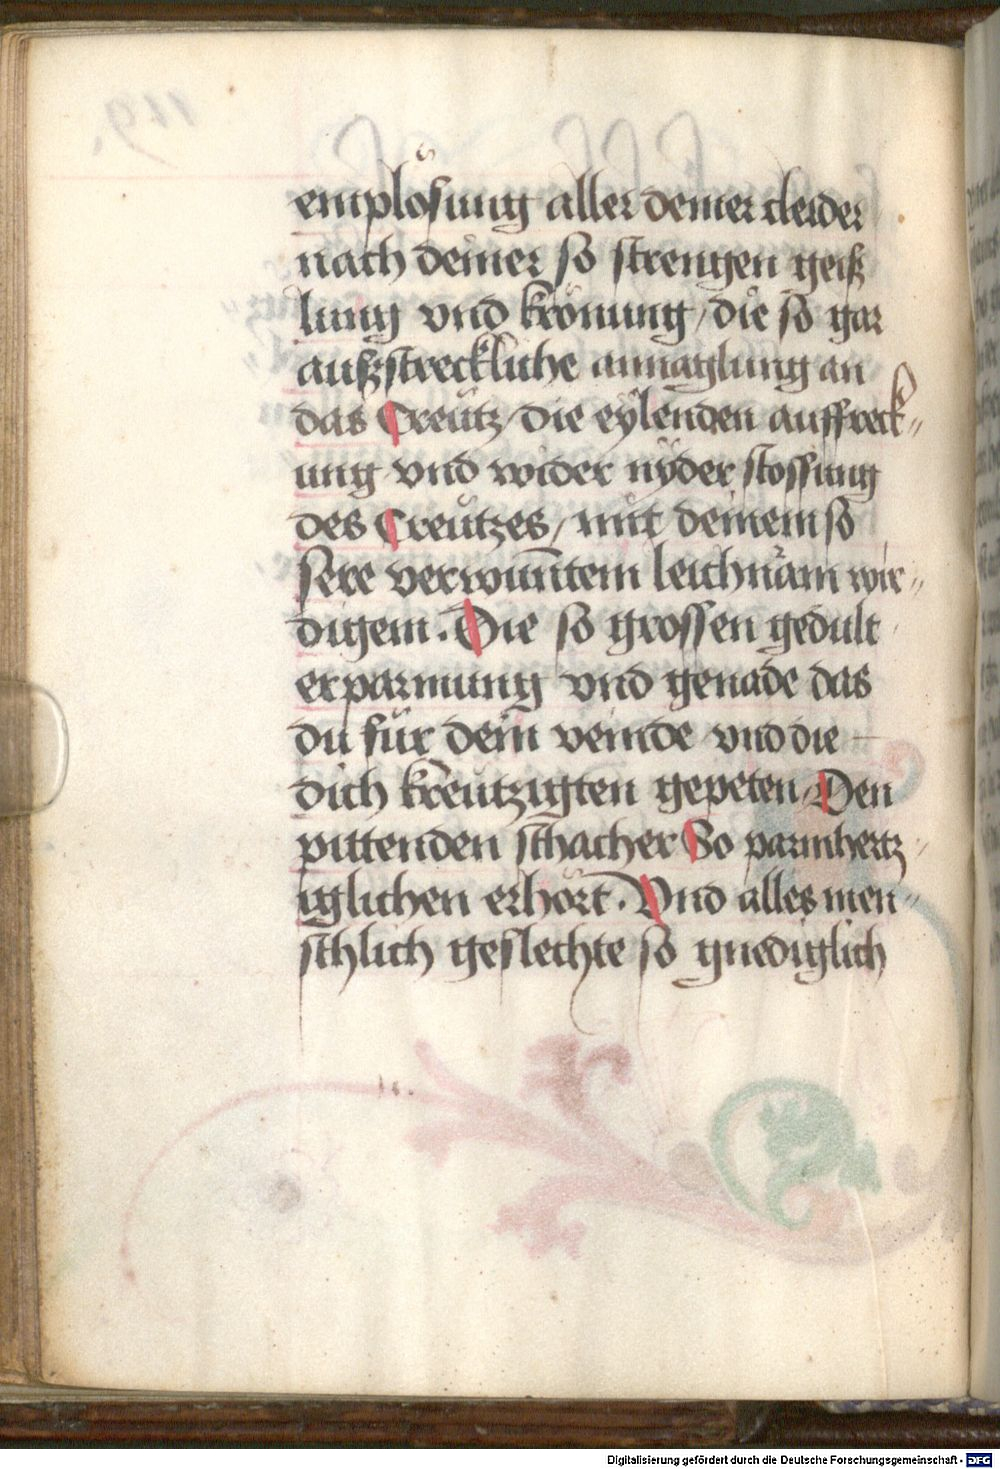 emplösung aller deiner cleider
nach deiner so strengen geiß
lung vnd krönung / die so gar
außstreckliche annaglung an
das Creütz / die eylenden auffreck„
ung vnd wider nÿder stossung
des Creützes / mit deinem so
sere verwunntem leichnam wir„
digem. Die so grossen gedult
erparmung vnd genade das
du für dein veinde vnd die
dich kreützigten gepeten / Den
pittenden schacher So parmhertz„
iglichen erhört. Vnd alles men„
schlich geslechte so gnediglich
Digitalisierung gefördert durch die Deutsche Forschungsgemeinschaft - DFG